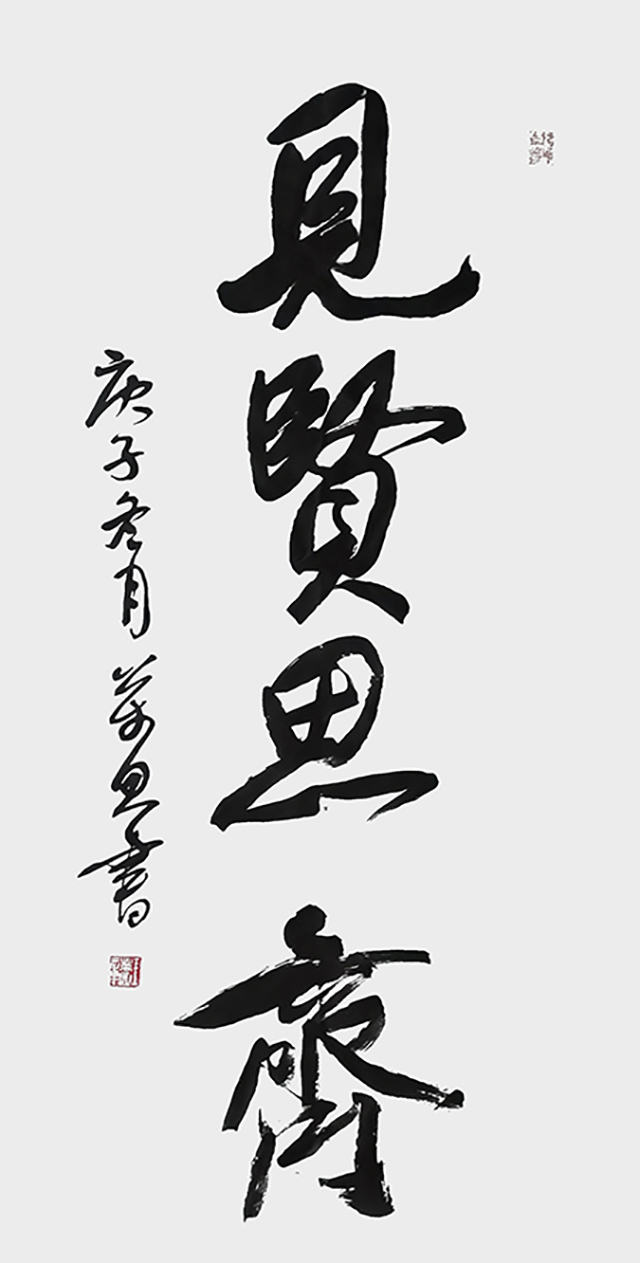 見賢思齊
庚子冬月 萬里書